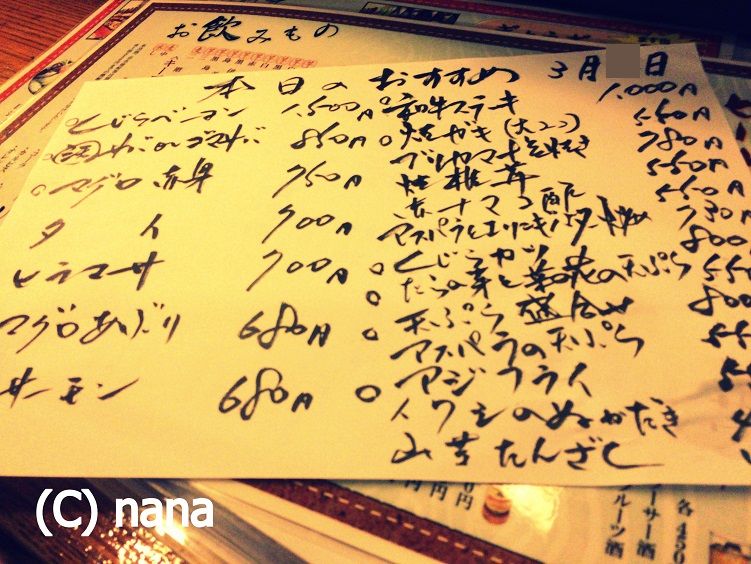 お飲みもの
本日のおすすめ 3月 日
くじらベーコン 1,500円
ゴマサバ 850円
マグロ赤身 750円
タイ 700円
ヒラマサ 700円
マグロあぶり 680円
サーモン 680円
和牛ステキ 1,000円
焼ガキ(大2コ) 550円
ブリカマ塩焼き 780円
焼椎茸 550円
赤ナマコ酢 550円
アスパラとエリンギバター炒め 730円
くじらカツ 800
たらの芽と菜の花の天ぷら 55
天ぷら盛合せ 800
アスパラの天ぷら 55
アジフライ 5
イワシのぬかだき
山芋たんざく
各450
ーサー酒
ルーツ酒
(C) nana